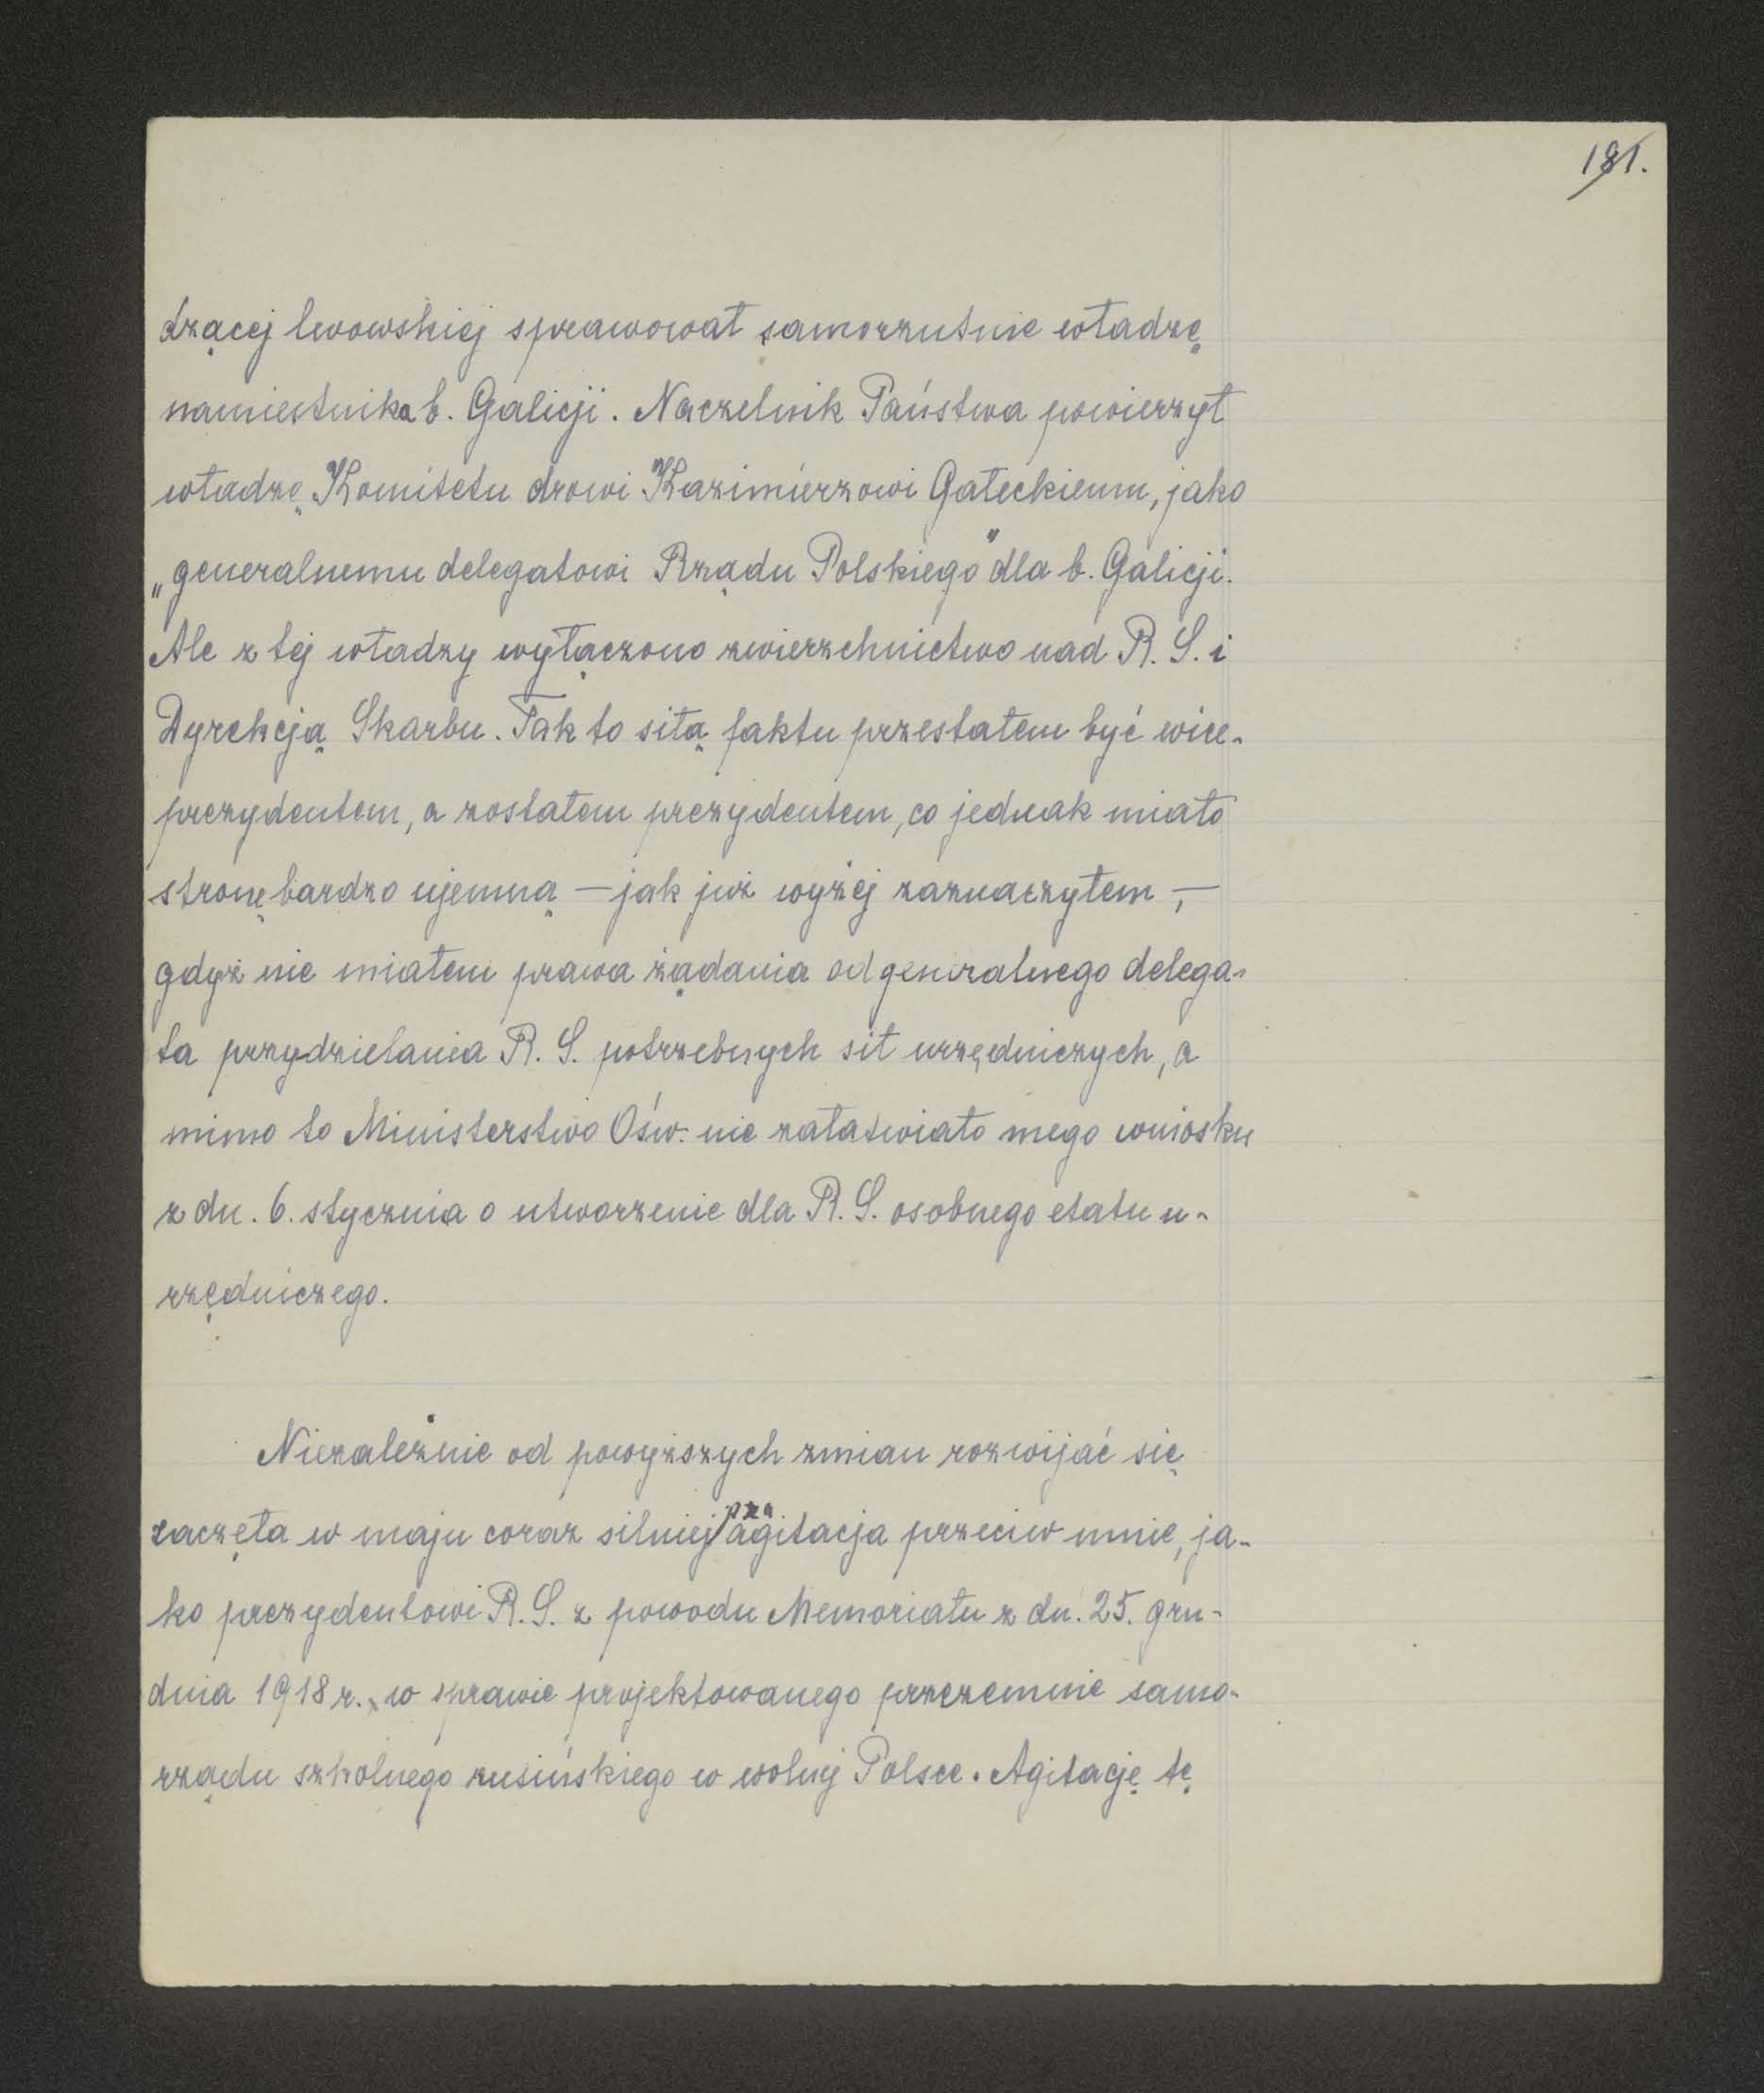 181.
dzącej lwowskiej sprawował samorzutnie władzę
namiestnika b. Galicji. Naczelnik Państwa powierzył
władzę Komitetu drowi Kazimierzowi Gałeckiemu, jako
„generalnemu delegatowi Rządu Polskiego" dla b. Galicji.
Ale z tej władzy wyłączono zwierzchnictwo nad R. S. i
Dyrekcją Skarbu. Tak to siłą faktu przestałem być wice-
prezydentem, a zostałem prezydentem, co jednak miało
stronę bardzo ujemną — jak już wyżej zaznaczyłem, —
gdyż nie miałem prawa żądania od generalnego delega-
ta przydzielania R. S. potrzebnych sił urzędniczych, a
mimo to Ministerstwo Ośw. nie załatwiało mego wniosku
z dn. 6. stycznia o utworzenie dla R. S. osobnego etatu u-
rzędniczego.
Niezależnie od powyższych zmian rozwijać się
zaczęła w maju coraz silniej agitacja przeciw mnie, ja-
ko prezydentowi R. S. z powodu Memoriału z dn. 25. gru-
dnia 1918 r. w sprawie projektowanego przezemnie samo-
rządu szkolnego rusińskiego w wolnej Polsce. Agitację tę